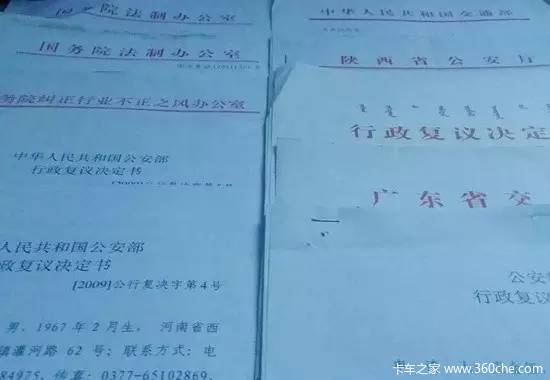 国务院法制办公室
国务院法制办公室
务院纠正行业不正之风办公室
中华人民共和国公安部
行政复议决定书
人民共和国公安部
政复议决定书
[2009]公行复决字第4号
男，1967年2月生，河南省西
镇灌河路62号；联系方式：电
84975，传真：0377-65102869，
中华人民共和国交通部
陕西省公安厅
行政复议决定
广东省交
公安
行政复议
卡车之家 www.360che.com